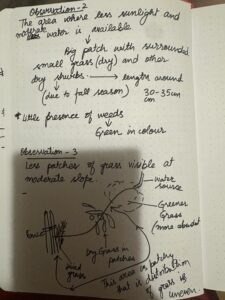 Observation-2
The area where less sunlight and
moderate water is available
↓
Dig patch with surrounded
small grass (dry) and other
dry shrubs → length around
(due to fall season) 30-35cm
cm
* Little presence of weeds
↳ Green in colour
Observation - 3
Less patches of grass visible at
moderate slope.
-
water
source
Greener
Grass
(more abundant
Fence
Dry Grass in
patches
dried
grass
This area is patchy
that is distribution
of grass is
uneven.